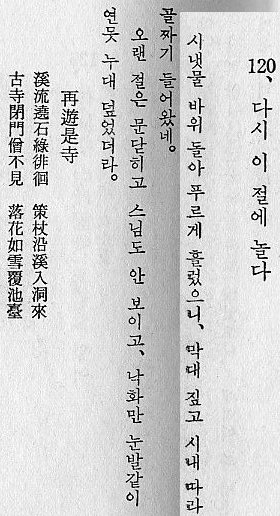 120、 다시 이 절에 놀다
시냇물 바위 돌아 푸르게 흘렀으니、 막대 짚고 시내 따라
골짜기 들어왔네。
오랜 절은 문닫히고 스님도 안 보이고、 낙화만 눈발같이
연못 누대 덮었더라。
再遊是寺
溪流遶石綠徘徊 策杖沿溪入洞來
古寺閉門僧不見 落花如雪覆池臺